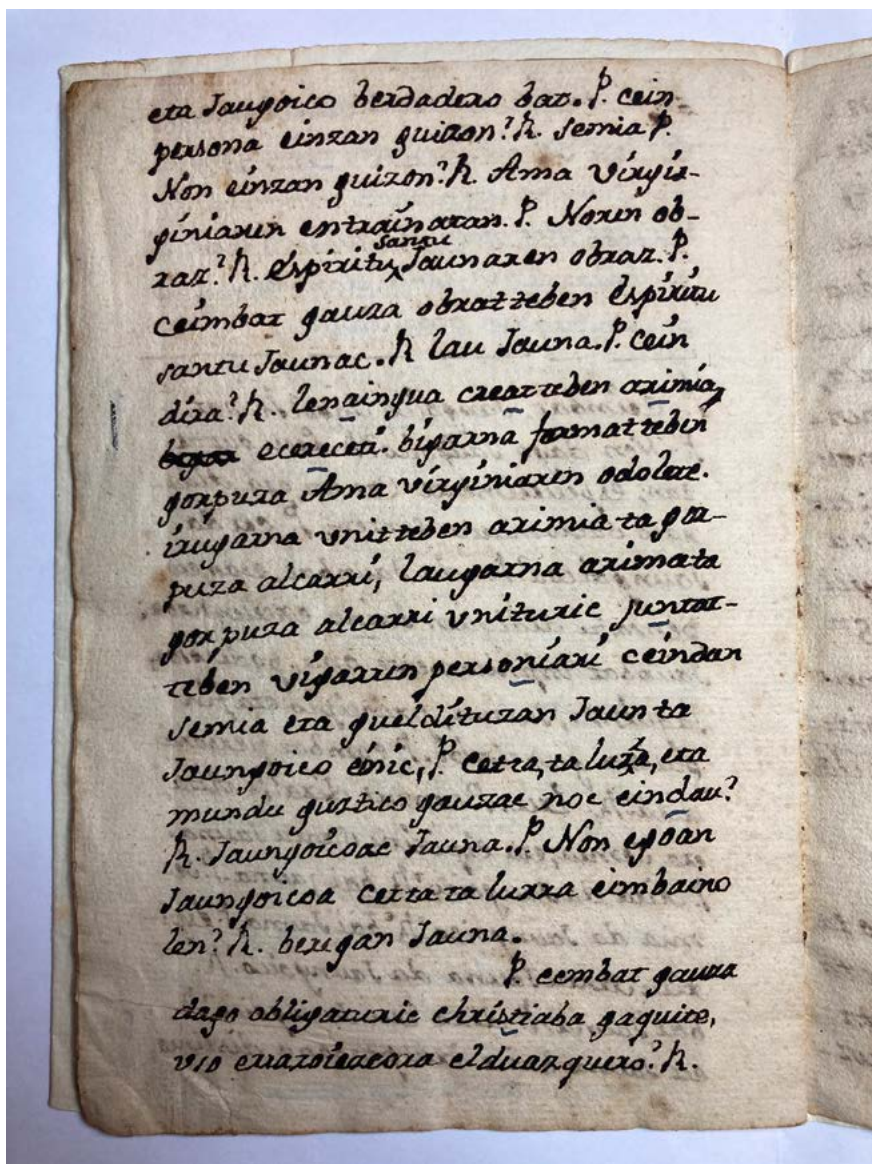 eta Jaungoico berdadero bat. P. cein
persona einzan guizon? R. Semia P.
Non einzan guizon? R. Ama Virgir-
giniaren entrainaran. P. Noren ob-
raz? R. Espiritu santu Jaunaren obraz. P.
Ceimbat gauza obratteben Espiritu
santu Jaunac. R lau Jauna. P. Cein
dira? R. lenaingua creatteben arimia,
ecereceti. bigarna formatteben
gorpuza Ama virginiaren odolere.
irugarna unitteben arimia ta gor-
puza alcarri, laugarna arimata
gorpuza alcarri unituric juntat-
teben vigarren personiari ceindan
Semia eta gueldituran Jaunta
Jaungoico einic, P. Cerra, ta lurra, eta
mundu guztico gauzac noc eindau?
R. Jaungoicoac Jauna. P. Non egoan
Jaungoicoa Cerrata lurra eimbaino
len? R. beregan Jauna.
P. cembat gauza
dago obligaturic christiaba gaquite,